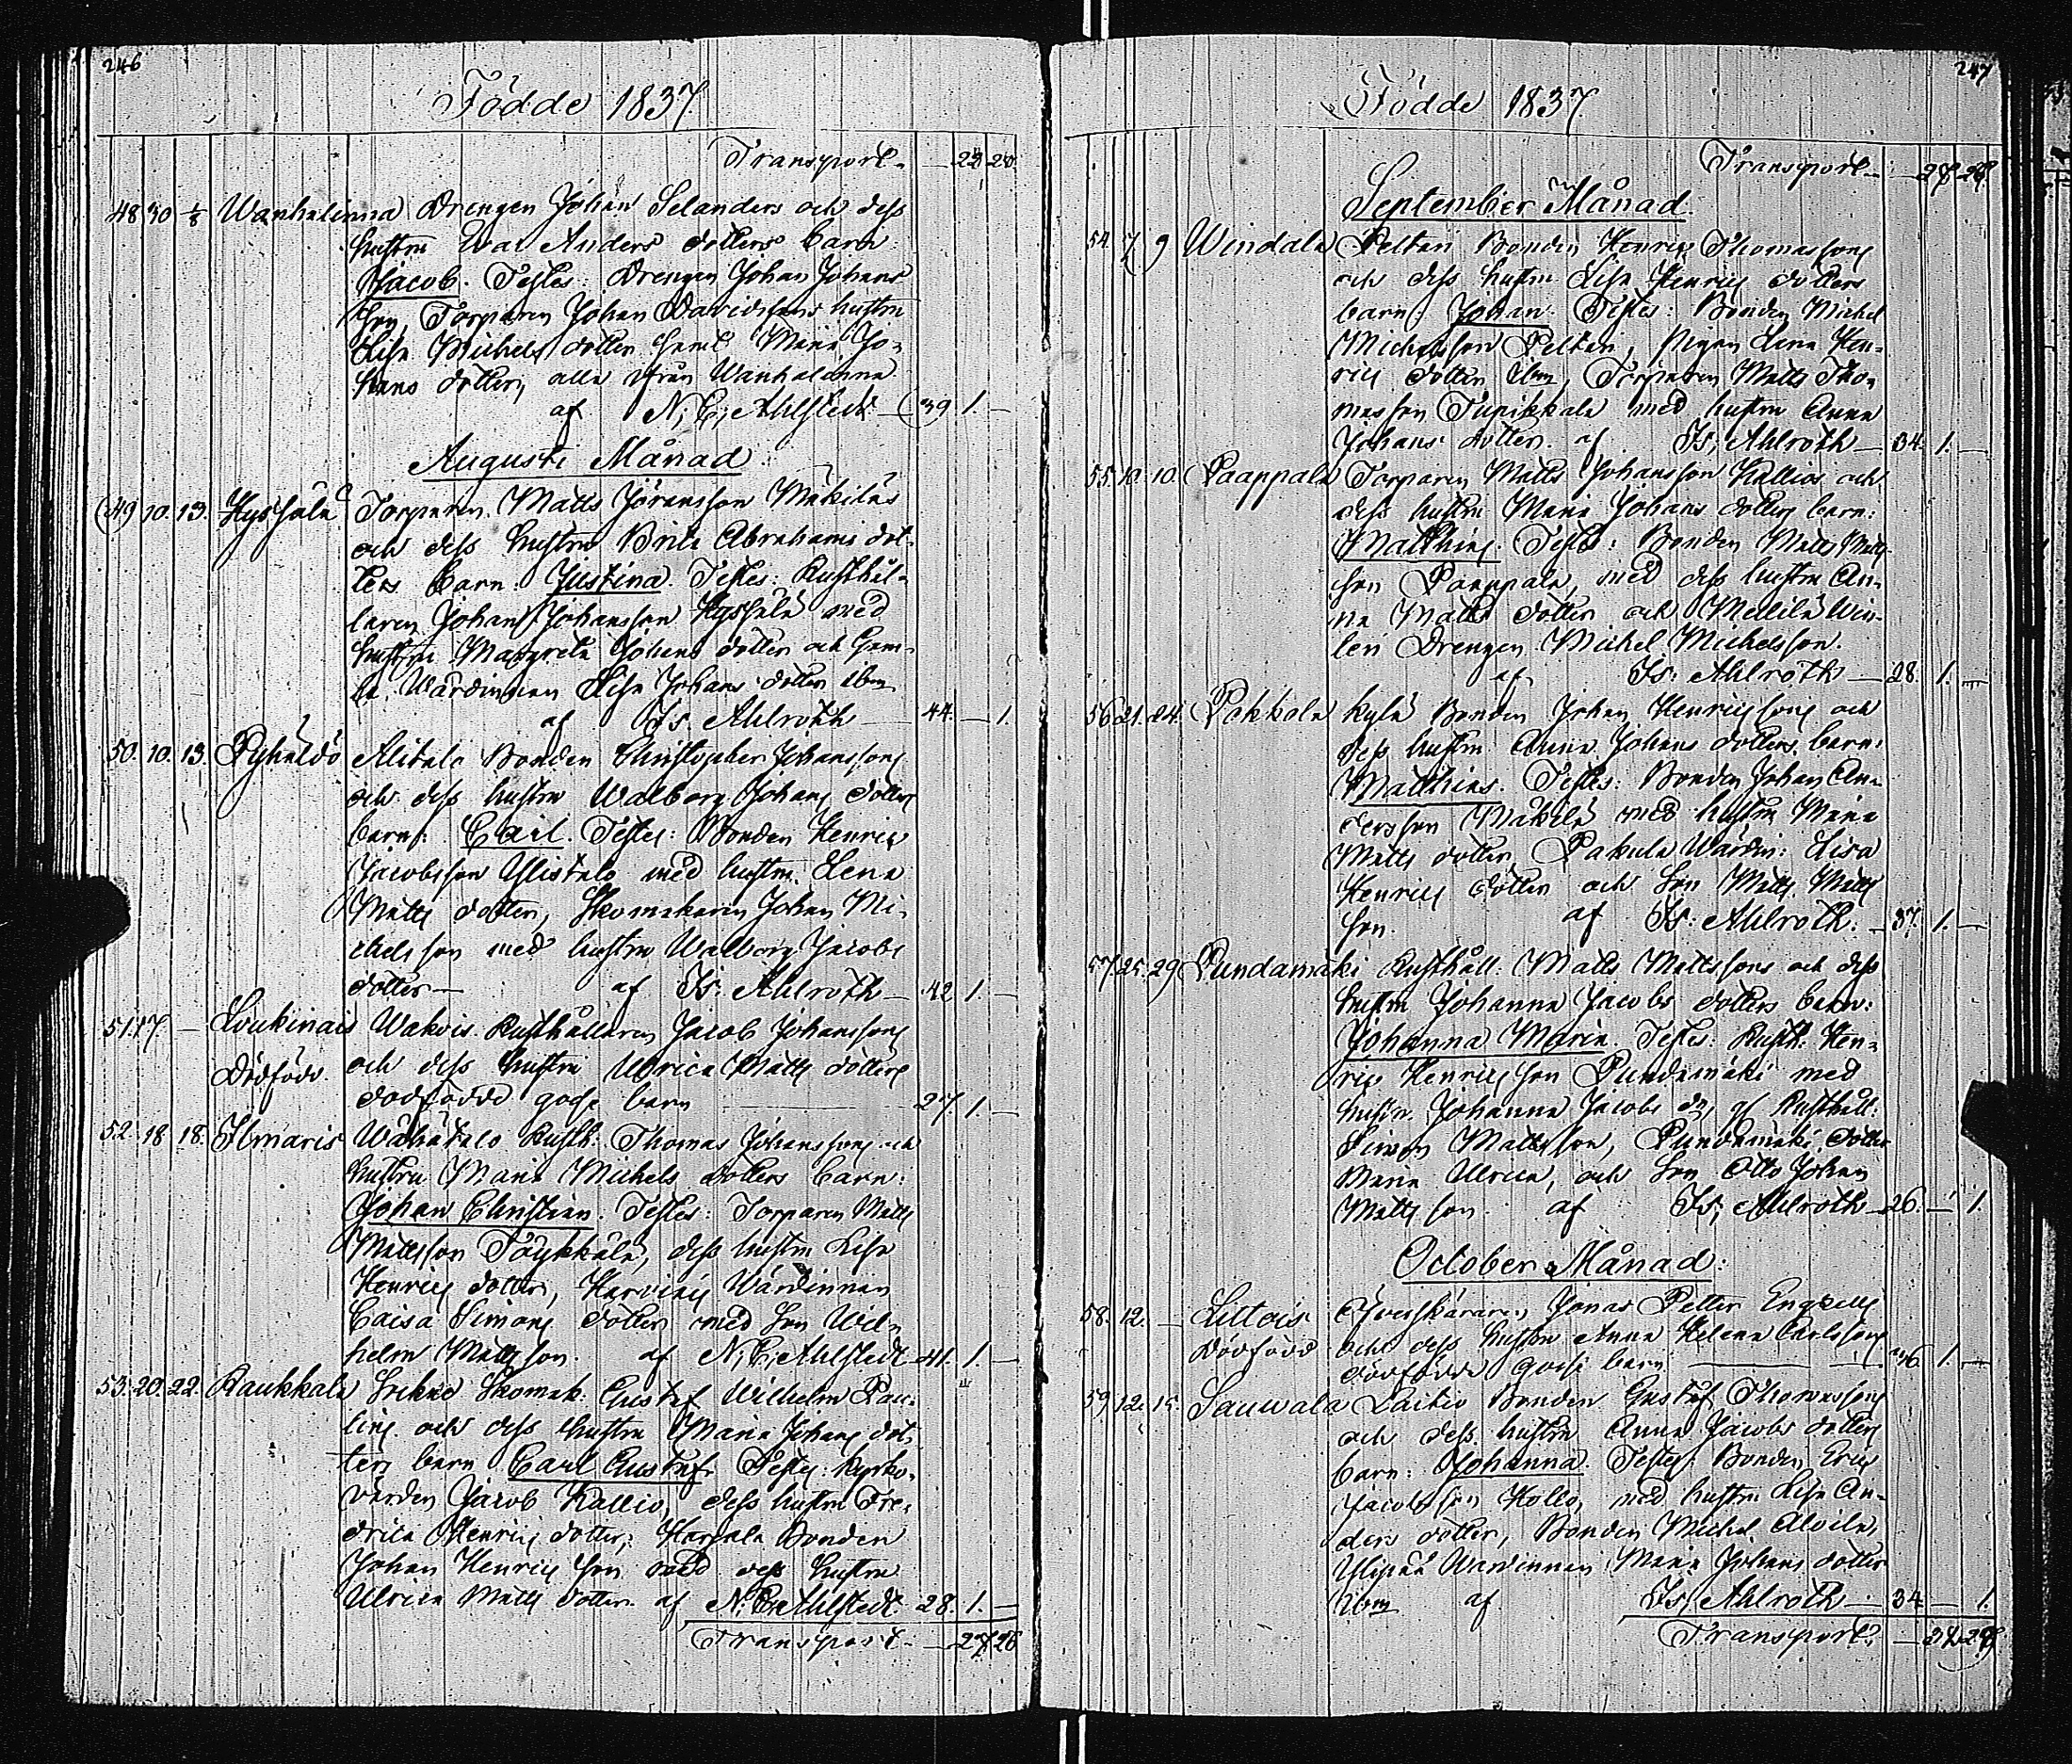 246
Födde 1837.
Transport
48 30 1/8 Wanhalinna Drengen Johan Selanders och dess
hustru Eva Anders dotters barn
Jacob. Testes: Drengen Johan Johans
son, Torparen Johan Davidssons hustru
Lisa Michels dotter samt Maria Jo-
hans dotter, alla ifrån Wanhalinna
af N. C. Ahlstedt 39 1. —
Augusti Månad
49 10. 13. Hyssälä Torparen Matts Jöransson Mäkiläs
och dess hustru Brita Abrahams dot-
ters barn: Justina. Testes: Rusthål-
laren Johan Johansson Hyssälä med
hustru Margreta Johans dotter och Gam-
la Wärdinnan Lisa Johans dotter ibm
af Is. Ahlroth 44. — 1.
50. 10. 13. Pyhäldö Alitalo Bonden Christopher Johanssons
och dess hustru Walborg Johans dotters
barn: Carl. Testes: Bonden Henric
Jacobsson Ylistalo med hustru Lena
Matts dotter, Skomakaren Johan Mi-
chelsson med hustru Walborg Jacobs
dotter — af Is. Ahlroth 42 1. —
51. 17. — Loukinais Wakois Rusthållaren Jacob Johanssons
Dödfödd. och dess hustru Ulrica Matts dotters
dödfödde gosse barn 27 1. —
52. 18. 18. Ilmaris Wähätalo Rusth: Thomas Johanssons och
hustru Maria Michels dotters barn:
Johan Christian. Testes: Torparen Matts
Mattsson Töykkälä, dess hustru Lisa
Henrics dotter, Harvious Wärdinnan
Caisa Simons dotter med Son Wil-
helm Mattsson. af N. C. Ahlstedt 41. 1. —
53. 20. 22. Raukkala Skomak: Gustaf Wilhelm Pau-
lins och dess hustru Maria Johans dot-
ters barn Carl Gustaf. Testes: Kyrko-
värden Jacob Kallio, dess hustru Fre-
drica Henrics dotter; Bonden
Johan Henricsson med dess hustru
Ulrica Matts dotter. af N. C. Ahlstedt 28. 1. —
Transport 27 26
247
Födde 1837.
Transport
September Månad
54. 7 9 Windala Peltari Bonden Henric Thomassons
och dess hustru Lisa Henrics dotters
barn: Johan. Testes: Bonden Michel
Michelsson Peltari, Pigan Lena Hen-
rics dotter ibm, Torparen Matts Tho-
masson Tupikkala med hustru Anna
Johans dotter. af Is. Ahlroth 34. 1. —
55. 10. 10. Paappala Torparen Matts Johansson Kallios och
dess hustru Maria Johans dotters barn:
Matthias. Testes: Bonden Matts Matts
son Paappala, med dess hustru An-
na Matts dotter och Mellilä
Drengen Michel Michelsson.
af Is. Ahlroth 28. 1. —
56 21. 24. Pokkola kylä Bonden Johan Henricssons och
dess hustru Anna Johans dotters barn:
Matthias. Testes: Bonden Johan An-
dersson Mäkilä med hustru Maria
Matts dotter, Pakula Wärdin: Lisa
Henrics dotter och Son Matts Matts
son. af Is. Ahlroth. 37. 1. —
57. 25. 29 Pundamäki Rusthåll: Matts Mattssons och dess
hustru Johanna Jacobs dotters barn:
Johanna Maria. Testes: Rusth. Hen-
ric Henricsson Pundamäki med
hustru Johanna Jacobs dr, Rusthåll:
Simon Mattsson, Pundamäki dotter
Maria Ulrica, och Son Otto Johan
Mattsson af Is. Ahlroth 26. — 1.
October Månad:
58. 12. — Littois Öfverskäraren Jonas Petter Engzells
Dödfödd och dess hustru Anna Helena Carlssons
dödfödde gosse barn 36 1. —
59. 12. 15. Sauwala Laitio Bonden Gustaf Thomassons
och dess hustru Anna Jacobs dotters
barn: Johanna Testes: Bonden Eric
Jacobsson Kollo, med hustru Lisa An-
ders dotter, Bonden Michel
Wärdinnan Maria Johans dotter
ibm af Is. Ahlroth 34 — 1.
Transport